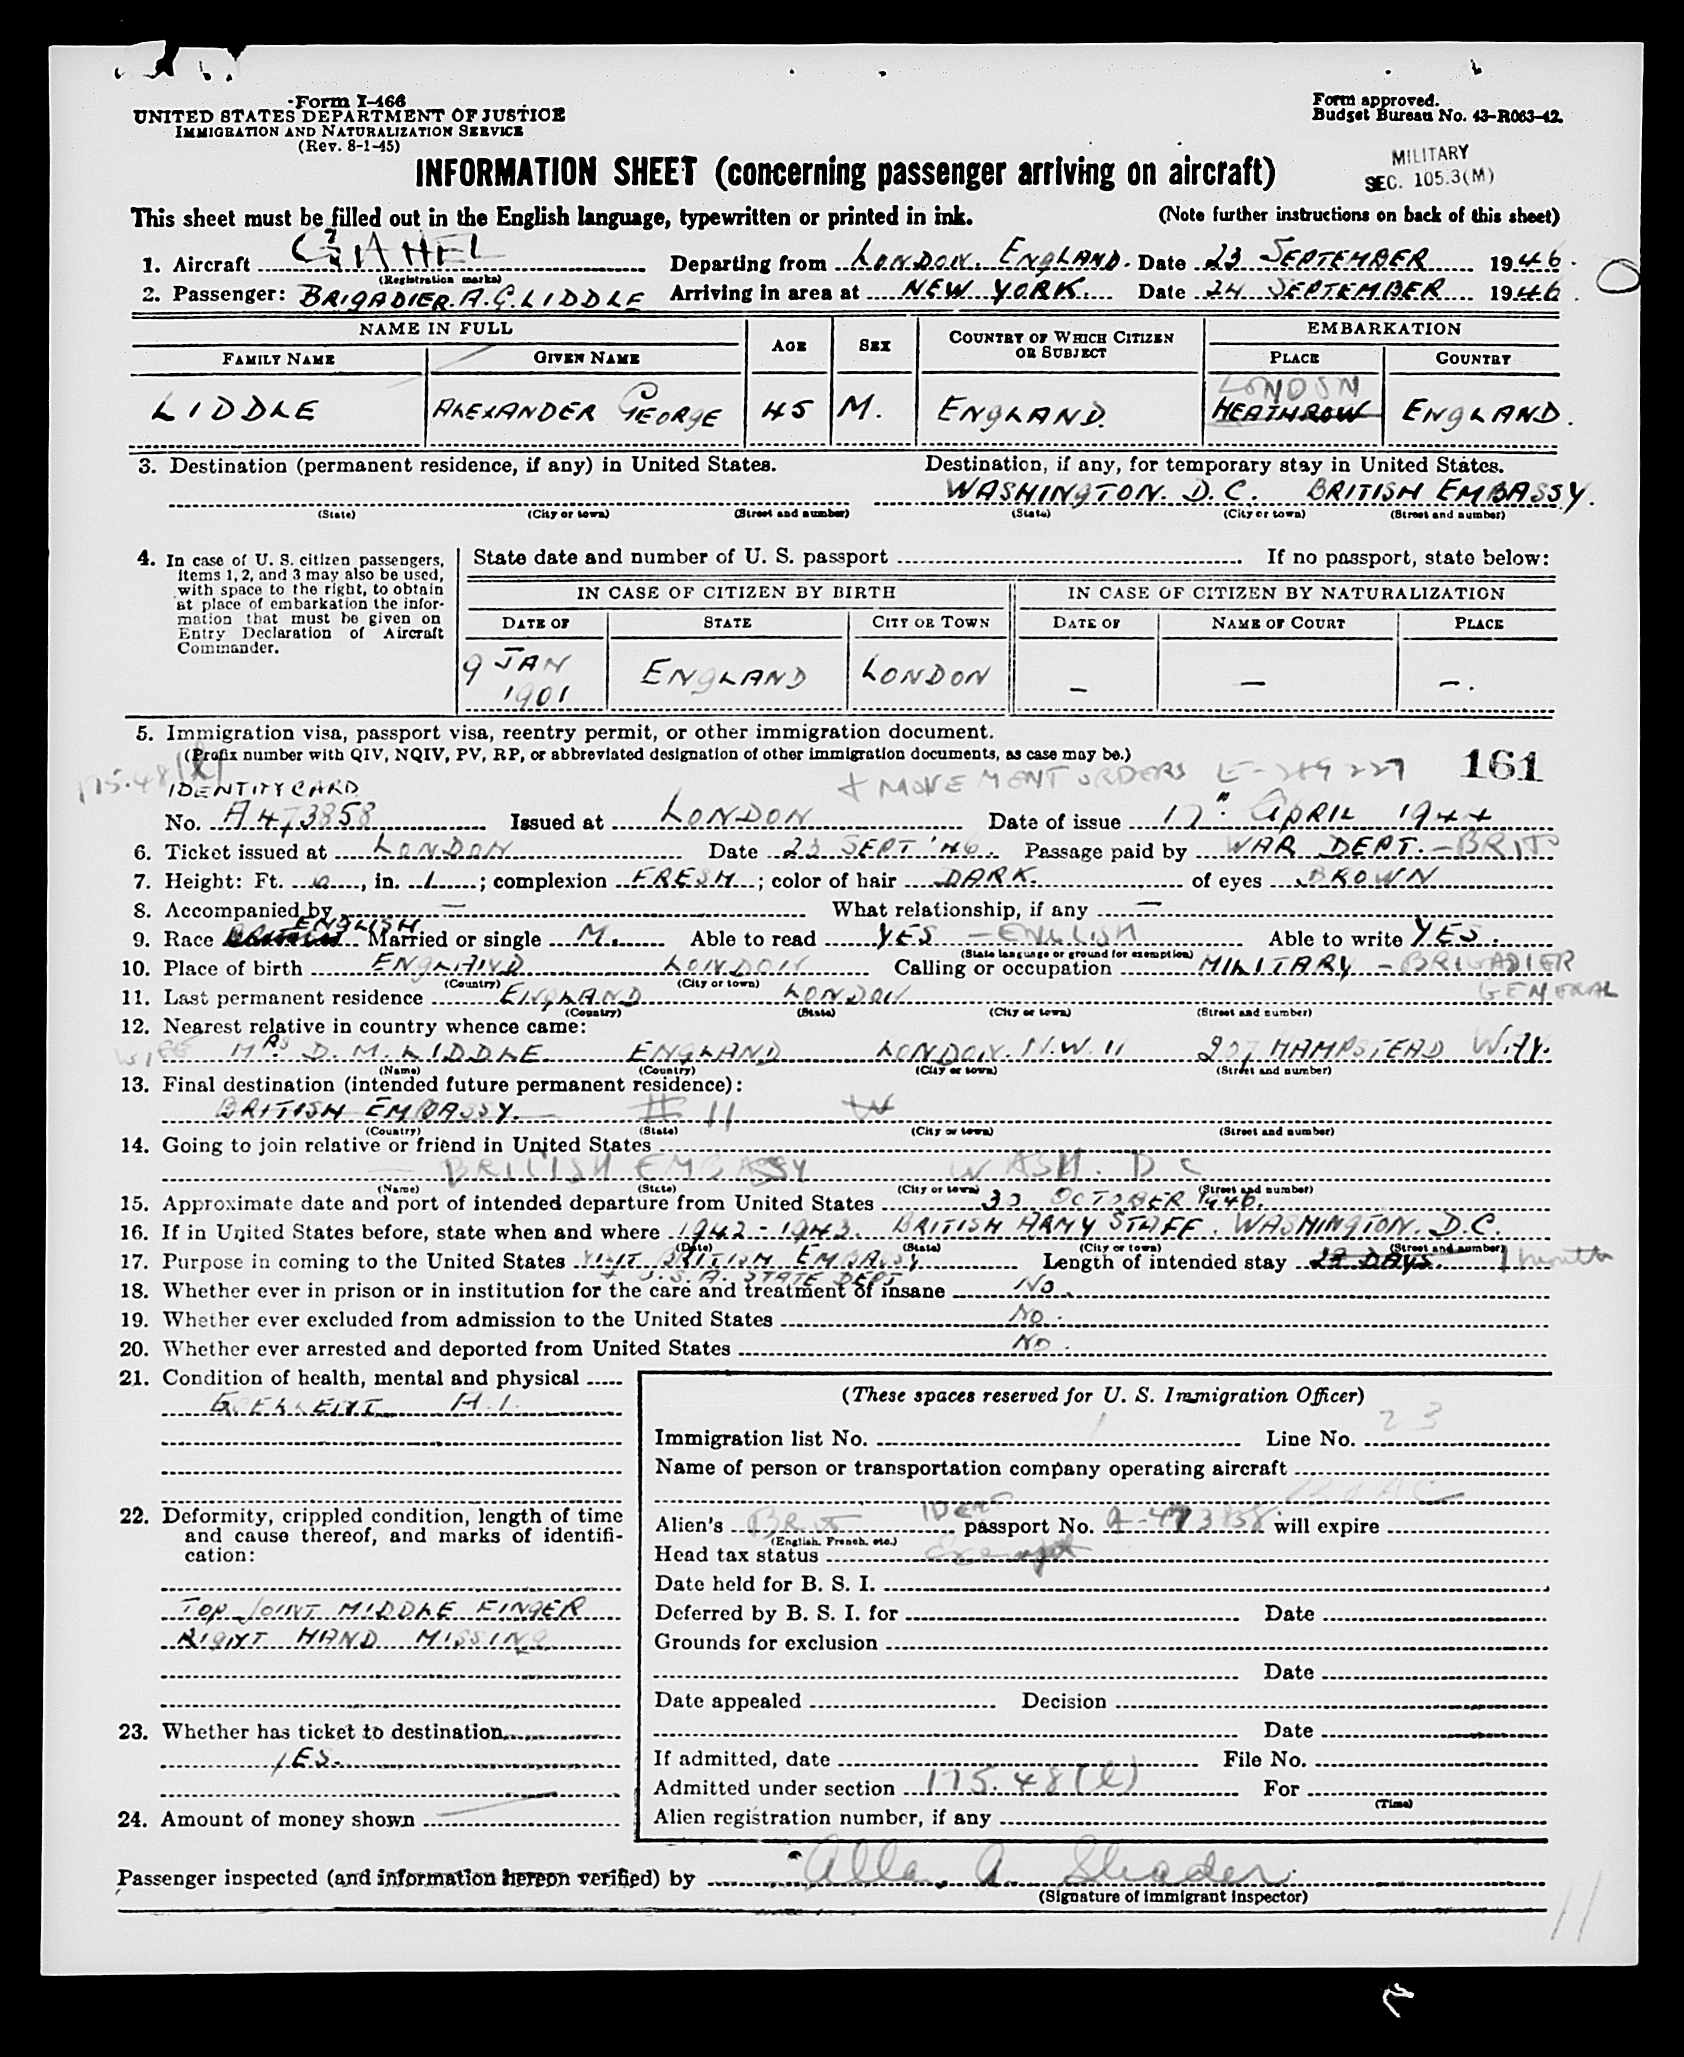 Form I-466
UNITED STATES DEPARTMENT OF JUSTICE
IMMIGRATION AND NATURALIZATION SERVICE
(Rev. 8-1-45)
Form approved.
Budget Bureau No. 43-R063-42.
MILITARY
SEC. 105.3(M)
INFORMATION SHEET (concerning passenger arriving on aircraft)
This sheet must be filled out in the English language, typewritten or printed in ink.
(Note further instructions on back of this sheet)
1. Aircraft GIAHEL Departing from LONDON. ENGLAND. Date 23 SEPTEMBER 1946.
(Registration marks)
2. Passenger: BRIGADIER. A.G. LIDDLE Arriving in area at NEW YORK. Date 24 SEPTEMBER 1946.
NAME IN FULL
AGE SEX COUNTRY OF WHICH CITIZEN OR SUBJECT
EMBARKATION
FAMILY NAME GIVEN NAME PLACE COUNTRY
LONDON
LIDDLE ALEXANDER GEORGE 45 M. ENGLAND. HEATHROW ENGLAND.
3. Destination (permanent residence, if any) in United States. Destination, if any, for temporary stay in United States.
WASHINGTON. D.C. BRITISH EMBASSY.
(State) (City or town) (Street and number) (State) (City or town) (Street and number)
4. In case of U. S. citizen passengers, items 1, 2, and 3 may also be used, with space to the right, to obtain at place of embarkation the information that must be given on Entry Declaration of Aircraft Commander.
State date and number of U. S. passport If no passport, state below:
IN CASE OF CITIZEN BY BIRTH IN CASE OF CITIZEN BY NATURALIZATION
DATE OF STATE CITY OR TOWN DATE OF NAME OF COURT PLACE
9 JAN 1901 ENGLAND LONDON - - -.
5. Immigration visa, passport visa, reentry permit, or other immigration document.
(Prefix number with QIV, NQIV, PV, RP, or abbreviated designation of other immigration documents, as case may be.)
161
175.48(l)
IDENTITY CARD + MOVEMENT ORDERS E-289227
No. A473858 Issued at LONDON Date of issue 17" APRIL 1944
6. Ticket issued at LONDON Date 23 SEPT '46. Passage paid by WAR DEPT. - BRIT
7. Height: Ft. 6, in. 1; complexion FRESH; color of hair DARK. of eyes BROWN
8. Accompanied by — What relationship, if any —
ENGLISH
9. Race Married or single M. Able to read YES - ENGLISH Able to write YES.
(State language or ground for exemption)
10. Place of birth ENGLAND LONDON Calling or occupation MILITARY - BRIGADIER GENERAL
(Country) (City or town)
11. Last permanent residence ENGLAND LONDON
(Country) (State) (City or town) (Street and number)
12. Nearest relative in country whence came:
WIFE MRS D. M. LIDDLE ENGLAND LONDON. N.W. 11 207 HAMPSTEAD WAY.
(Name) (Country) (City or town) (Street and number)
13. Final destination (intended future permanent residence):
BRITISH EMBASSY. # 11 W
(Country) (State) (City or town) (Street and number)
14. Going to join relative or friend in United States
— BRITISH EMBASSY WASH. D C
(Name) (State) (City or town) (Street and number)
15. Approximate date and port of intended departure from United States 30 OCTOBER 1946.
16. If in United States before, state when and where 1942 - 1943. BRITISH ARMY STAFF. WASHINGTON. D.C.
(Date) (State) (City or town) (Street and number)
17. Purpose in coming to the United States VISIT BRITISH EMBASSY Length of intended stay 29 DAYS. 1 month
+ U.S.A. STATE DEPT
18. Whether ever in prison or in institution for the care and treatment of insane NO.
19. Whether ever excluded from admission to the United States NO.
20. Whether ever arrested and deported from United States NO.
21. Condition of health, mental and physical
EXCELLENT A.1.
22. Deformity, crippled condition, length of time and cause thereof, and marks of identification:
TOP JOINT MIDDLE FINGER
RIGHT HAND MISSING
23. Whether has ticket to destination
YES.
24. Amount of money shown
(These spaces reserved for U. S. Immigration Officer)
Immigration list No. 1 Line No. 23
Name of person or transportation company operating aircraft
BOAC
Alien's Brit IDENT passport No. A-473858 will expire
(English, French, etc.)
Head tax status Exempt
Date held for B. S. I.
Deferred by B. S. I. for Date
Grounds for exclusion
Date
Date appealed Decision
Date
If admitted, date File No.
Admitted under section 175.48(l) For
(Time)
Alien registration number, if any
Passenger inspected (and information hereon verified) by Allan A. Shader
(Signature of immigrant inspector)
11